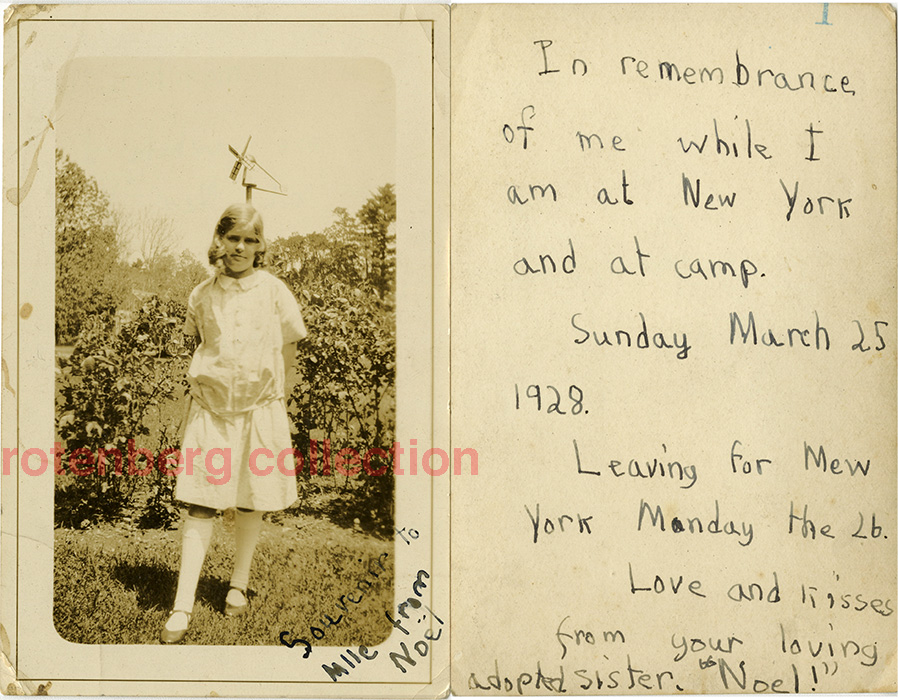 rotenberg collection
Souvenir to
Mlle from
Noël
1
In remembrance
of me while I
am at New York
and at camp.
Sunday March 25
1928.
Leaving for Mew
York Monday the 26.
Love and kisses
from your loving
adopted sister. "Noel!"